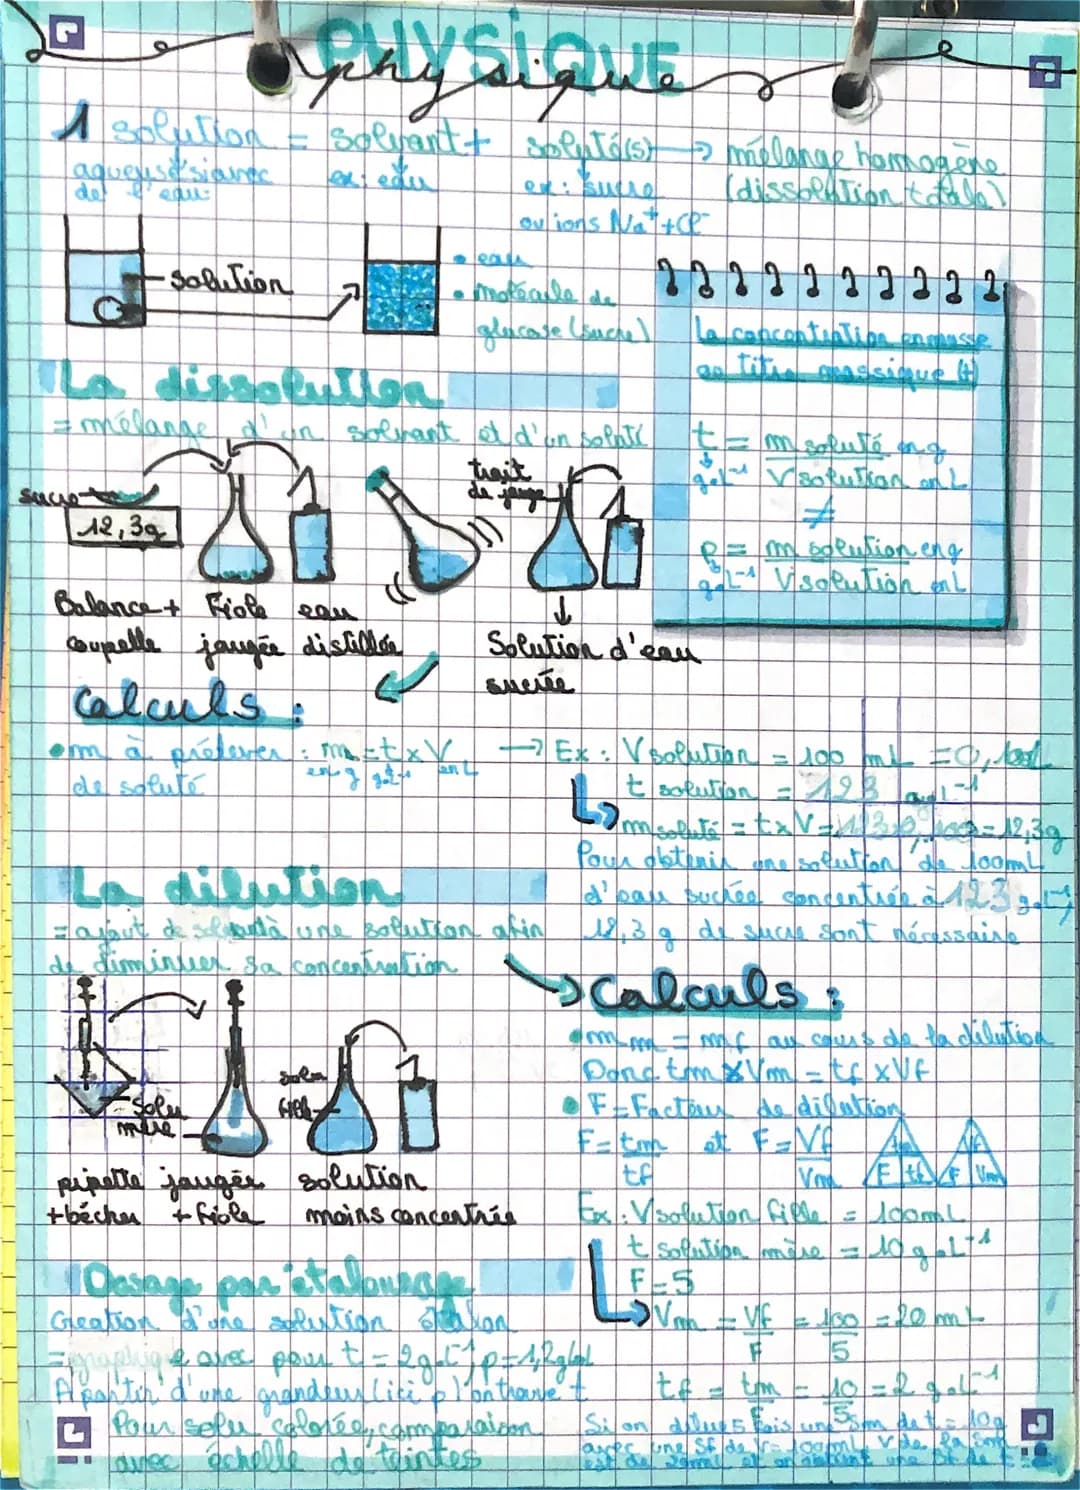 PHYSIQUE
physique
1 solution = solvant + soluté(s) → mélange homogène
aqueuse si avec ex: eau ex: sucre (dissolution totale)
de l'eau ou ions Na⁺+Cl⁻
solution
• eau
• molécule de
glucose (sucre)
La concentration en masse
ou titre massique (t)
t = m soluté en g
g.L⁻¹ V solution en L
≠
ρ = m solution en g
g.L⁻¹ V solution en L
La dissolution
= mélange d'un solvant et d'un soluté
sucre
12,3g
trait
de jauge
Balance + Fiole eau
coupelle jaugée distillée
Solution d'eau
sucrée
Calculs :
• m à prélever : m = t x V
de soluté en g g.L⁻¹ en L
→ Ex : V solution = 100 mL = 0,100L
t solution = 123 g.L⁻¹
m soluté = t x V = 123 x 0,100 = 12,3g
Pour obtenir une solution de 100mL
d'eau sucrée concentrée à 123 g.L⁻¹,
12,3 g de sucre sont nécessaire
La dilution
= ajout de solvant à une solution afin
de diminuer sa concentration
Solu
mère
solu
fille
pipette jaugée solution
+ bécher + fiole moins concentrée
Calculs :
• m m = m f au cours de la dilution
Donc tm x Vm = tf x Vf
• F = Facteur de dilution
F = tm et F = Vf
tf Vm
tm
F tf
Vf
F Vm
Ex : V solution fille = 100mL
t solution mère = 10 g.L⁻¹
F = 5
Vm = Vf = 100 = 20 mL
F 5
tf = tm = 10 = 2 g.L⁻¹
F 5
Si on dilue 5 fois une Sm de t = 10g
avec une Sf de V = 100mL, V de la Sm
est de 20mL et on obtient une Sf de t =
Dosage par étalonnage
Creation d'une solution étalon
= graphique avec pour t = 2g.L⁻¹, ρ = 1,2g/mL
A partir d'une grandeur (ici ρ) on trouve t
Pour solu colorée, comparaison
avec échelle de teintes